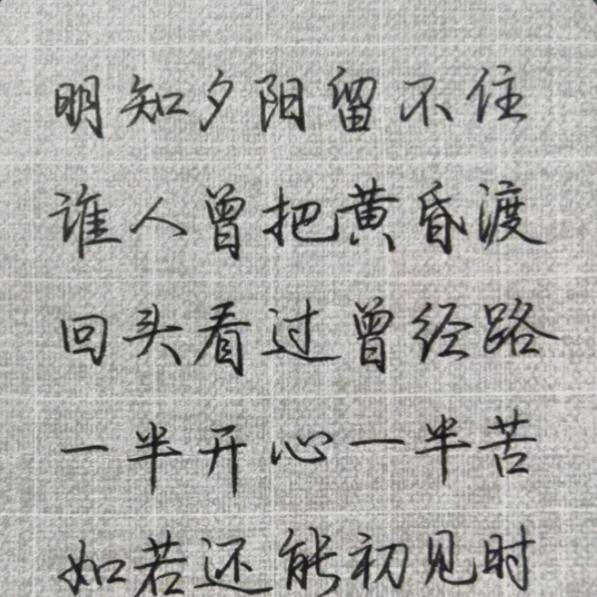 明知夕阳留不住
谁人曾把黄昏渡
回头看过曾经路
一半开心一半苦
如若还能初见时